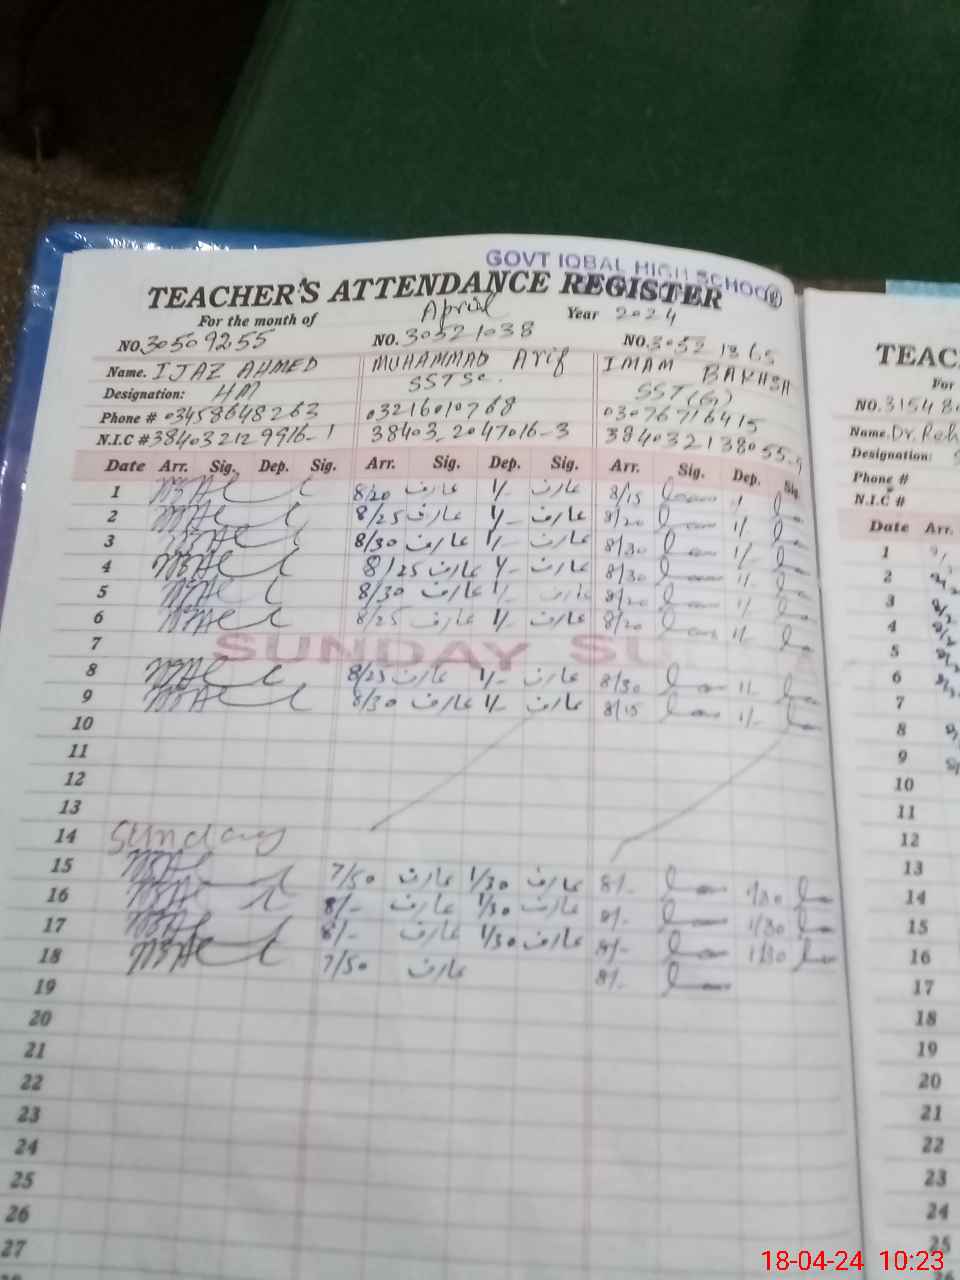 GOVT IQBAL HIGH SCHOOL
TEACHER'S ATTENDANCE REGISTER
For the month of April Year 2024
NO. 30509255 NO. 30521038 NO. 30521365
Name. IJAZ AHMED MUHAMMAD Arif IMAM BAKHSH
Designation: HM SSTSc. SST(G)
Phone # 03458648263 03216010768 03076716415
N.I.C # 38403_2047016-3
Date Arr. Sig. Dep. Sig. Arr. Sig. Dep. Sig. Arr. Sig. Dep. Sig.
1 8/20 عارف 1/- عارف 8/15 1/-
2 8/25 عارف 1/- عارف 8/20 1/-
3 8/30 عارف 1/- عارف 8/30 1/-
4 8/25 عارف 1/- عارف 8/30 1/-
5 8/30 عارف 1/- عارف 8/20 1/-
6 8/25 عارف 1/- عارف 8/20 1/-
7 SUNDAY SU
8 8/25 عارف 1/- عارف 8/30 1/-
9 8/30 عارف 1/- عارف 8/15 1/-
10
11
12
13
14 Sunday
15 7/50 عارف 1/30 عارف 8/- 1/30
16 8/- عارف 1/30 عارف 8/- 1/30
17 8/- عارف 1/30 عارف 8/- 1/30
18 7/50 عارف 8/-
19
20
21
22
23
24
25
26
27
TEAC
For
NO. 3154
Name. Dr. Reh
Designation:
Phone #
N.I.C #
Date Arr.
1
2
3
4
5
6
7
8
9
10
11
12
13
14
15
16
17
18
19
20
21
22
23
24
25
18-04-24 10:23